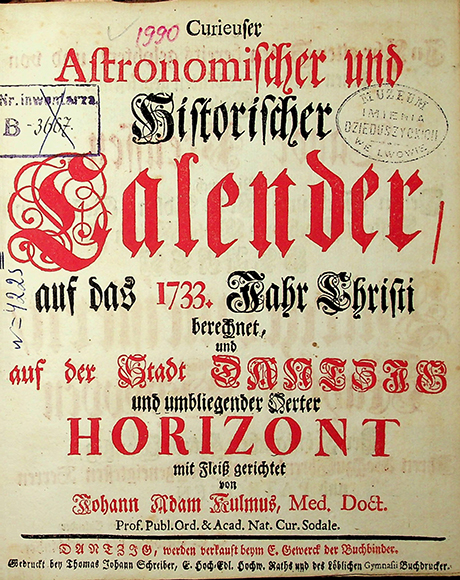 1990
Curieuser
Astronomischer und
Historischer
Calender,
auf das 1733. Jahr Christi
berechnet,
und
auf der Stadt DANTZIG
und umbliegender Oerter
HORIZONT
mit Fleiß gerichtet
von
Johann Adam Kulmus, Med. Doct.
Prof. Publ. Ord. & Acad. Nat. Cur. Sodale.
DANTZIG, werden verkauft beym E. Gewerck der Buchbinder.
Gedruckt bey Thomas Johann Schreiber, E. Hoch-Edl. Hochw. Raths und des löblichen Gymnasii Buchdrucker.
Nr. inwentarza
B - 3667.
MUZEUM
IMIENIA
DZIEDUSZYCKICH
WE LWOWIE